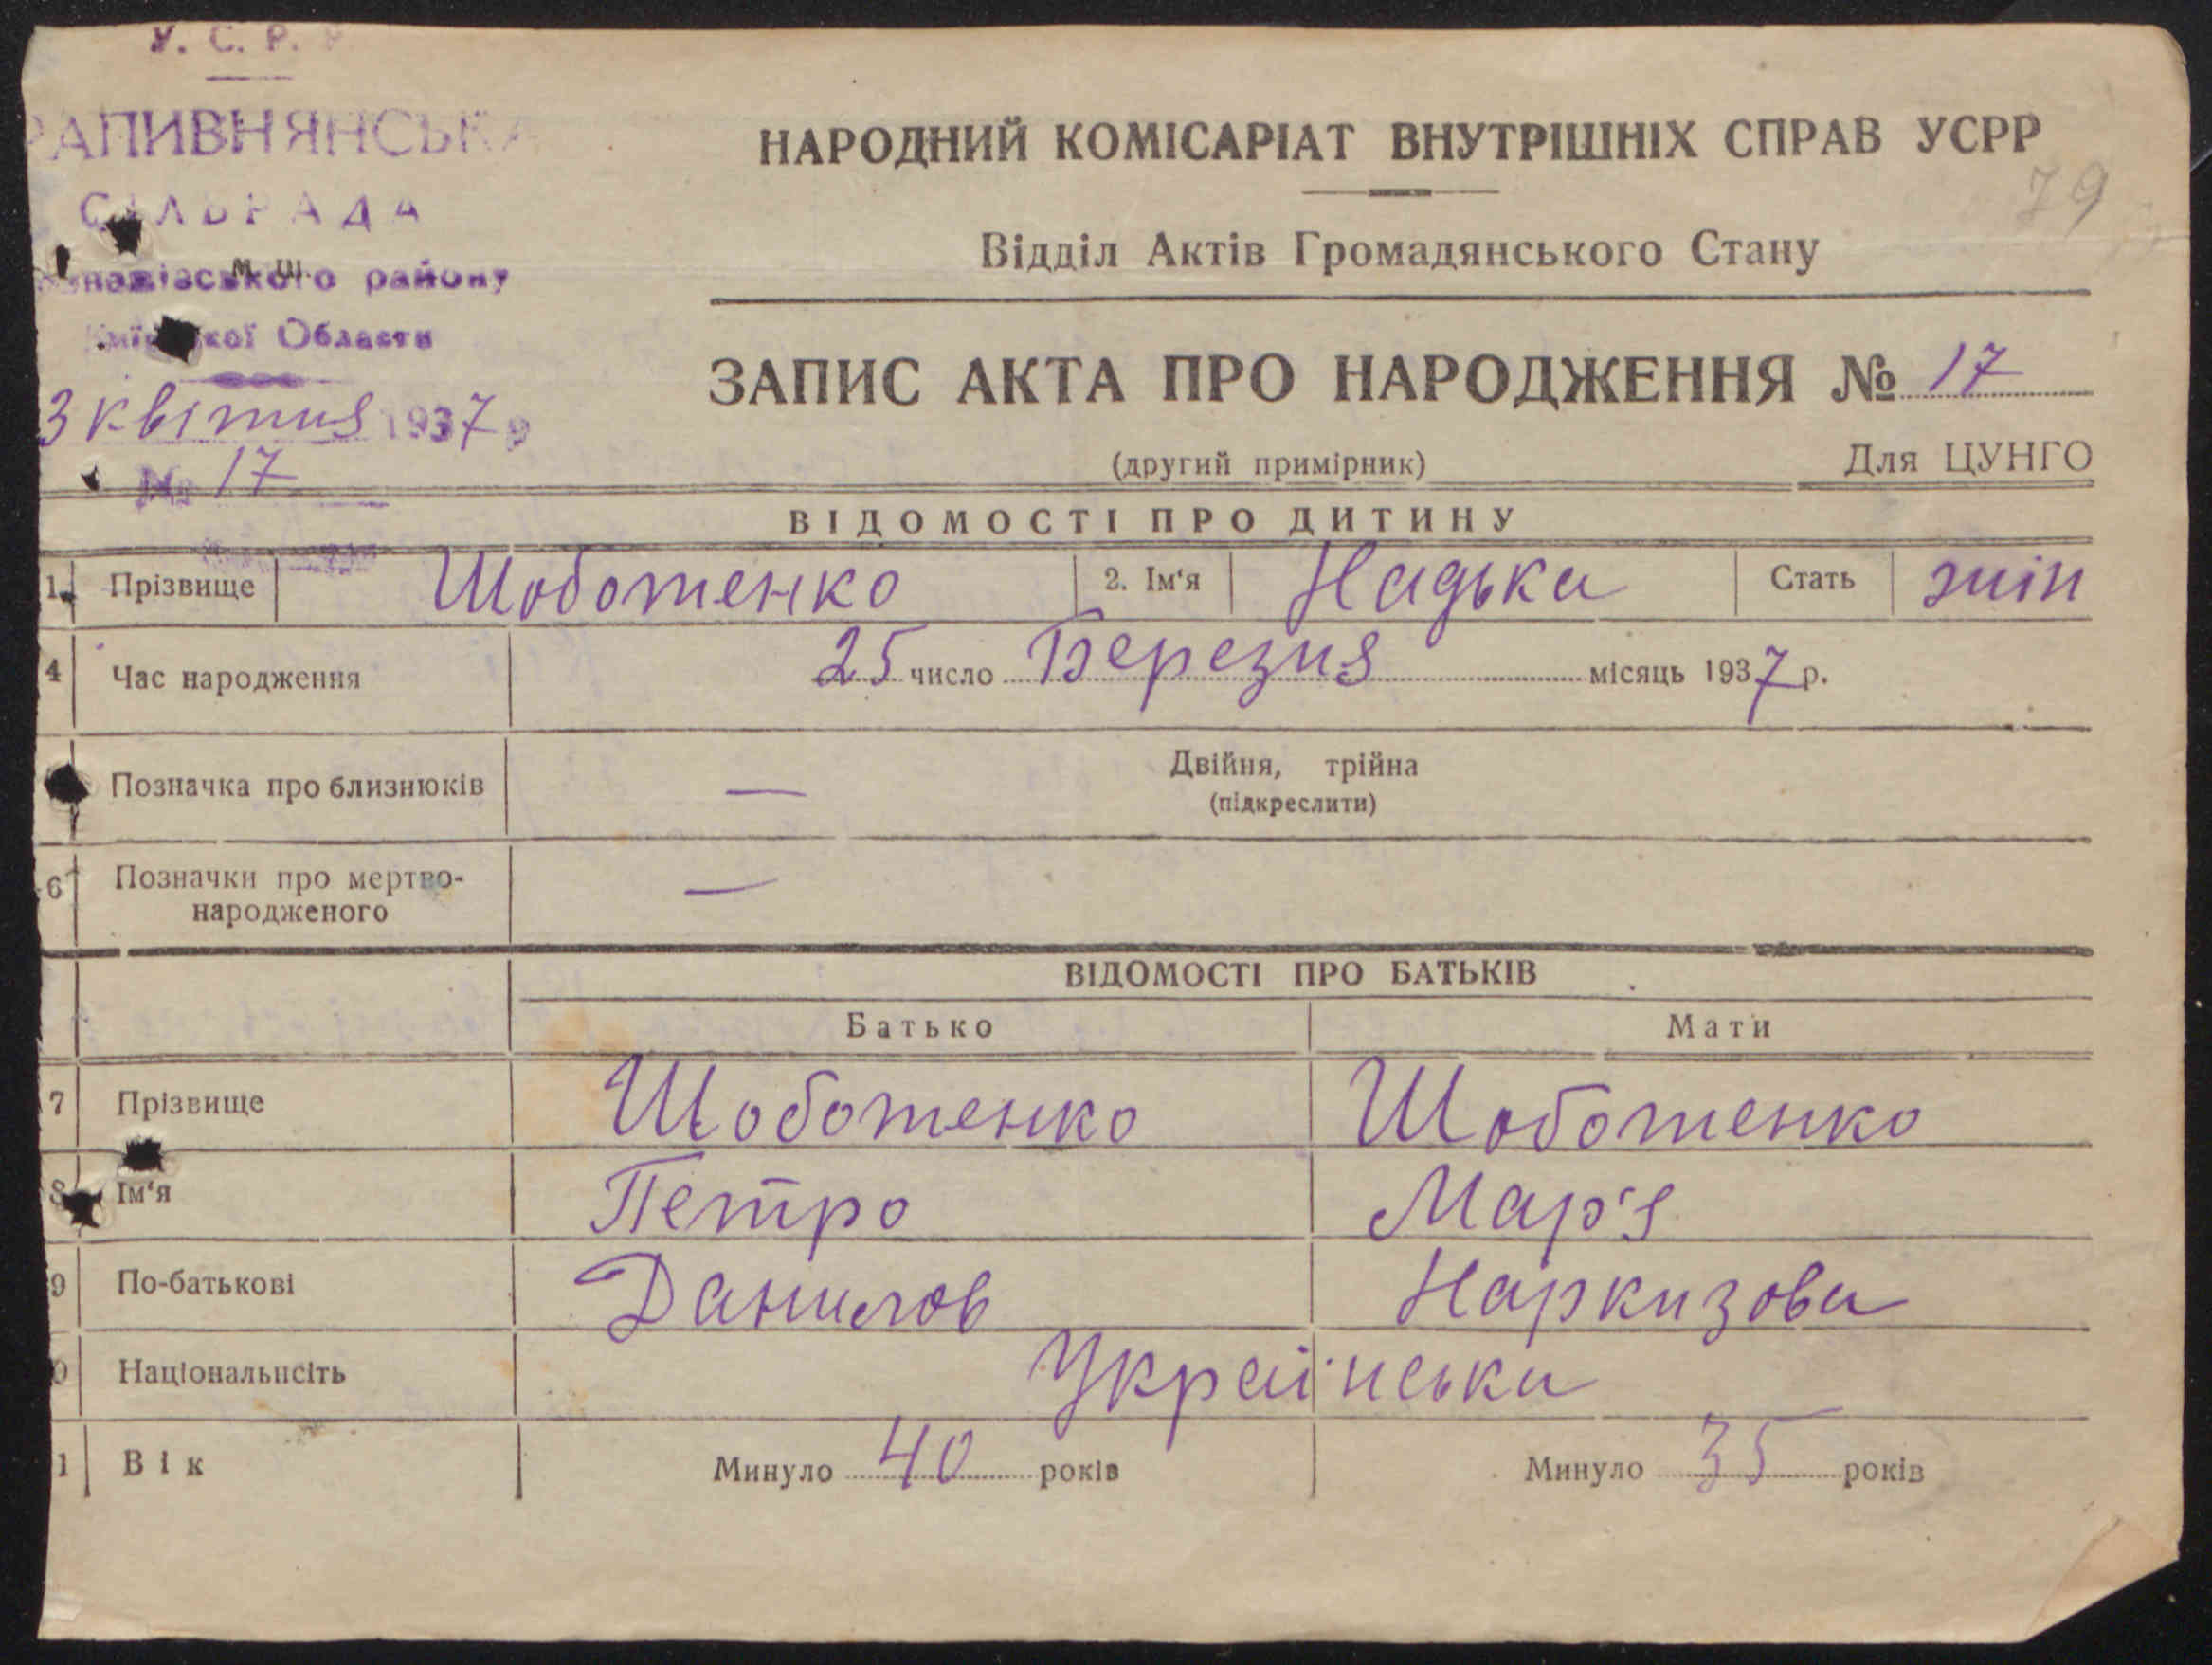 У. С. Р. Р.
РАПИВНЯНСЬКА
СІЛЬРАДА
М. Ш.
району
Київської Области
3 квітня 1937 р
№ 17
НАРОДНИЙ КОМІСАРІАТ ВНУТРІШНІХ СПРАВ УСРР
79
Відділ Актів Громадянського Стану
ЗАПИС АКТА ПРО НАРОДЖЕННЯ № 17
(другий примірник) Для ЦУНГО
ВІДОМОСТІ ПРО ДИТИНУ
1. Прізвище Шоботенко 2. Ім'я Надька Стать жін
4 Час народження 25 число Березня місяць 1937 р.
Позначка про близнюків — Двійня, трійна
(підкреслити)
6 Позначки про мертво-
народженого —
ВІДОМОСТІ ПРО БАТЬКІВ
Батько Мати
7 Прізвище Шоботенко Шоботенко
8 Ім'я Петро Мар'я
9 По-батькові Данилов Наркизова
0 Національність Українська
1 Вік Минуло 40 років Минуло 35 років